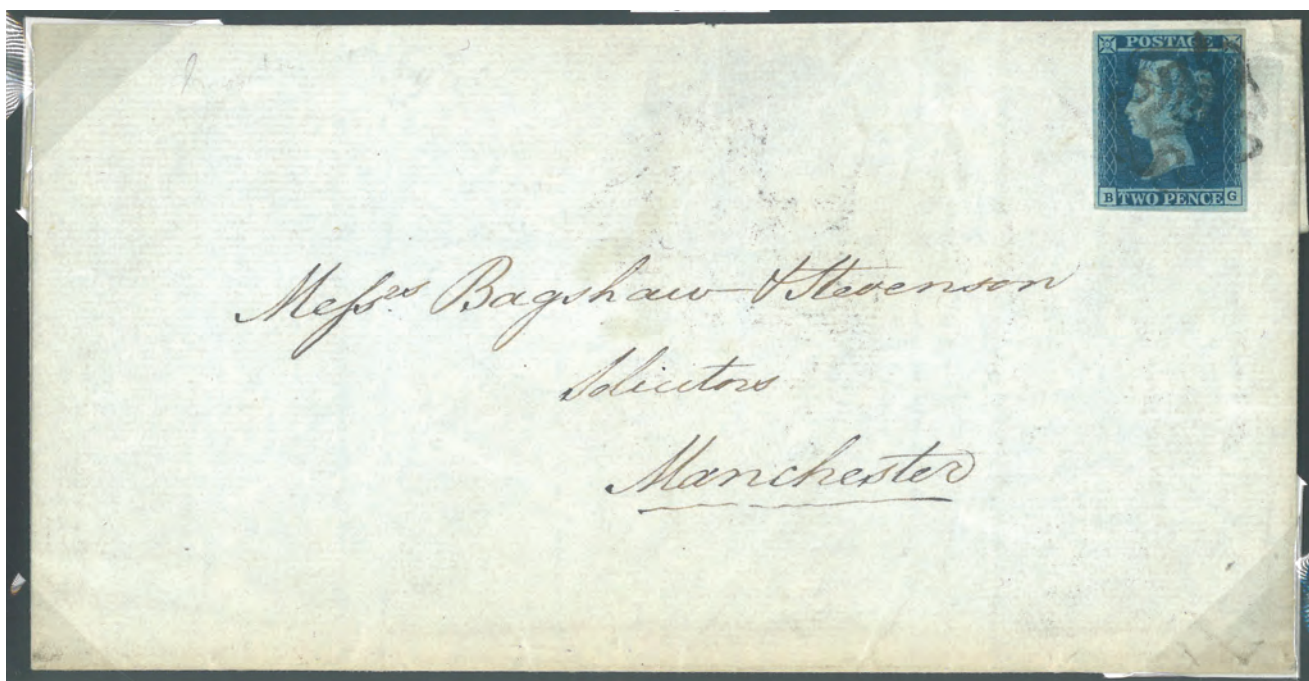 POSTAGE
B TWO PENCE G
Messrs Bagshaw & Stevenson
Solicitors
Manchester